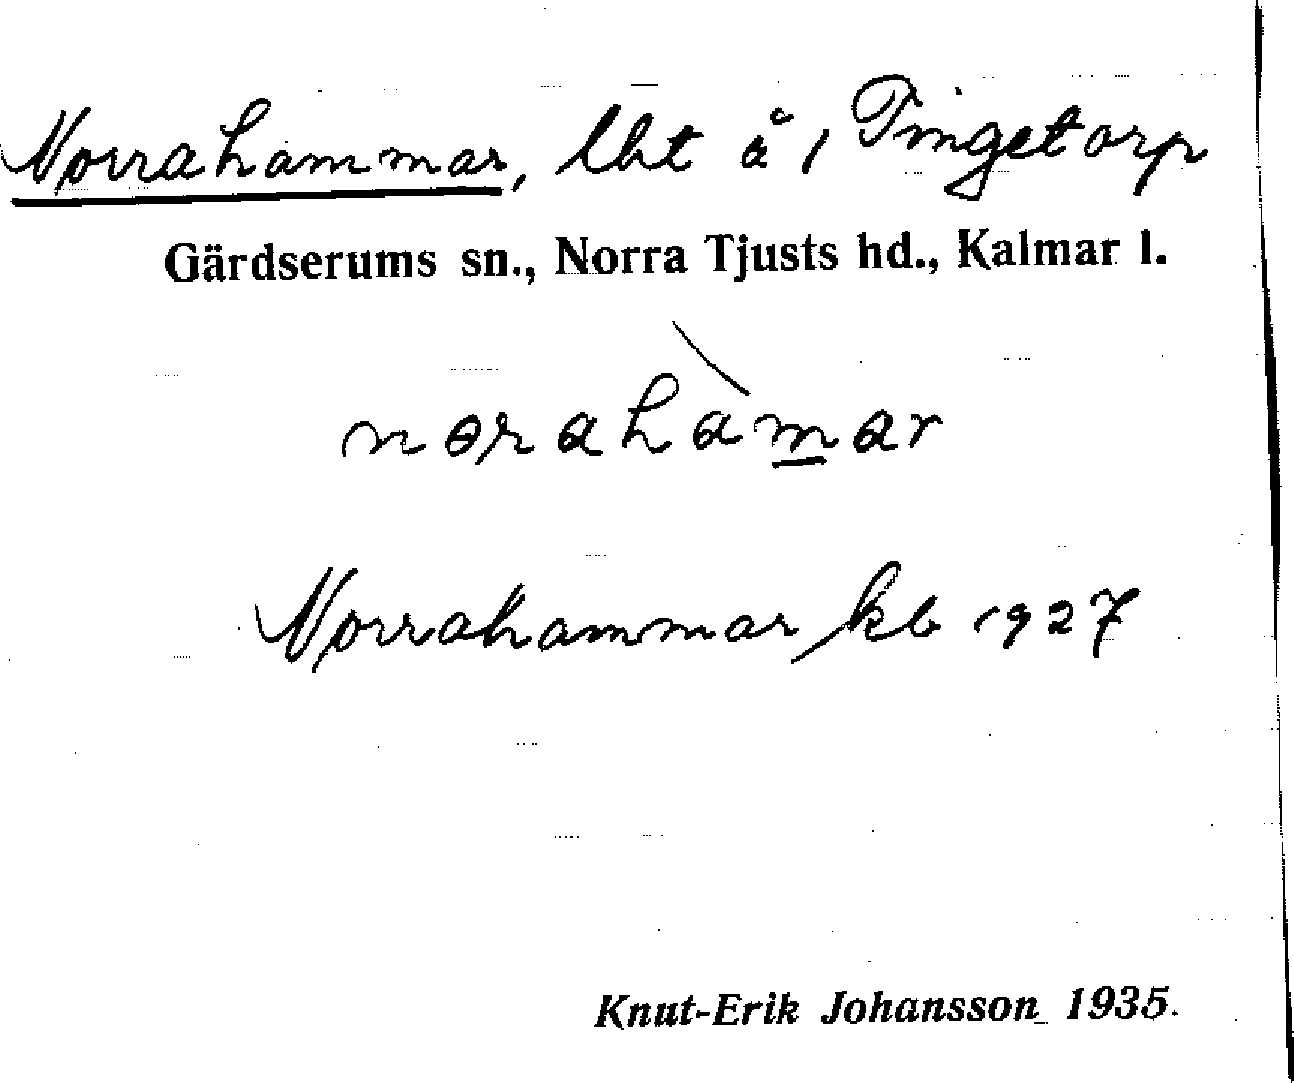 Norrahammar, lht å 1 Tingetorp
Gärdserums sn., Norra Tjusts hd., Kalmar l.
nɵrahàmar
Norrahammar kb 1927
Knut-Erik Johansson 1935.